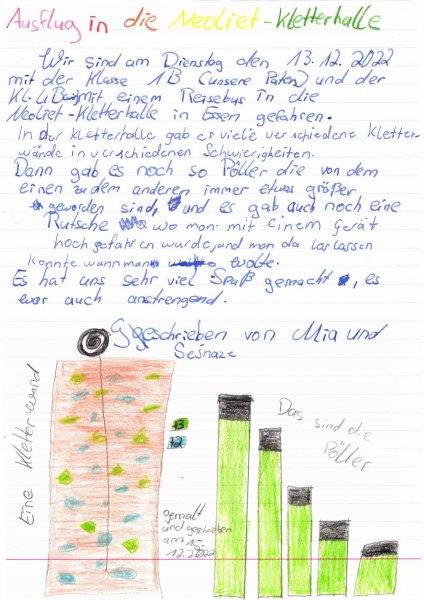 Ausflug in die Neoliet-Kletterhalle
Wir sind am Dienstag den 13.12.2022
mit der Klasse 1B (unsere Paten) und der
Kl. mit einem Reisebus in die
Neoliet-Kletterhalle in Essen gefahren.
In der Kletterhalle gab es viele verschiedene Kletter-
wände in verschiedenen Schwierigkeiten.
Dann gab es noch so Pöller die von dem
einen zu dem anderen immer etwas größer
geworden sind, und es gab auch noch eine
Rutsche wo man mit einem Gerät
hochgefahren wurde, und man da loslassen
konnte wann man wollte.
Es hat uns sehr viel Spaß gemacht, es
war auch anstrengend.
geschrieben von Mia und
Eine Kletterwand
Das sind die
Pöller
gemalt
und geschrieben
am 15.
12.2022